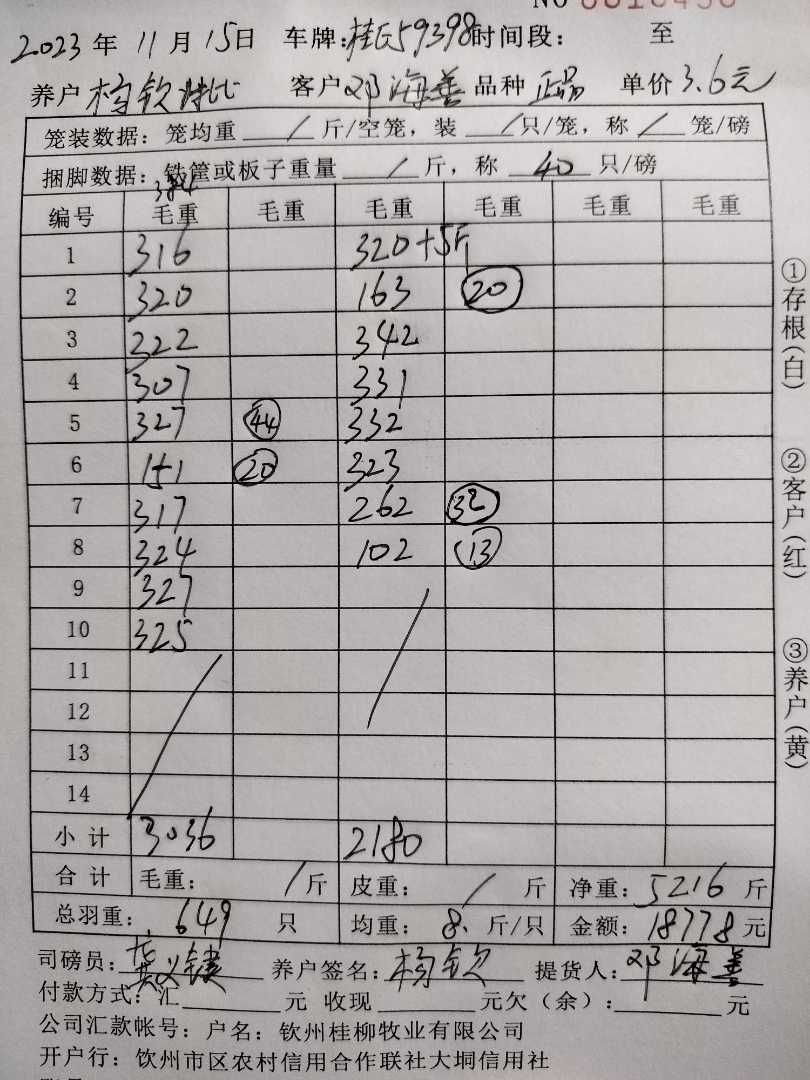 NO 0010456
2023年 11月 15日 车牌:桂E59398 时间段: 至
养户 杨钦 客户 邓海善 品种 正品 单价 3.6元
笼装数据: 笼均重 / 斤/空笼, 装 / 只/笼, 称 / 笼/磅
捆脚数据: 铁筐或板子重量 / 斤, 称 40 只/磅
编号 毛重 毛重 毛重 毛重 毛重 毛重
1 316 320+5斤
2 320 163 20
3 322 342
4 307 331
5 327 44 332
6 151 20 323
7 317 262 32
8 324 102 13
9 327
10 325
11
12
13
14
小计 3036 2180
合计 毛重: / 斤 皮重: / 斤 净重: 5216 斤
总羽重: 649 只 均重: 8. 斤/只 金额: 18778 元
司磅员: 养户签名: 杨钦 提货人: 邓海善
付款方式: 汇 元 收现 元欠(余): 元
公司汇款帐号: 户名: 钦州桂柳牧业有限公司
开户行: 钦州市区农村信用合作联社大垌信用社
①存根(白) ②客户(红) ③养户(黄)